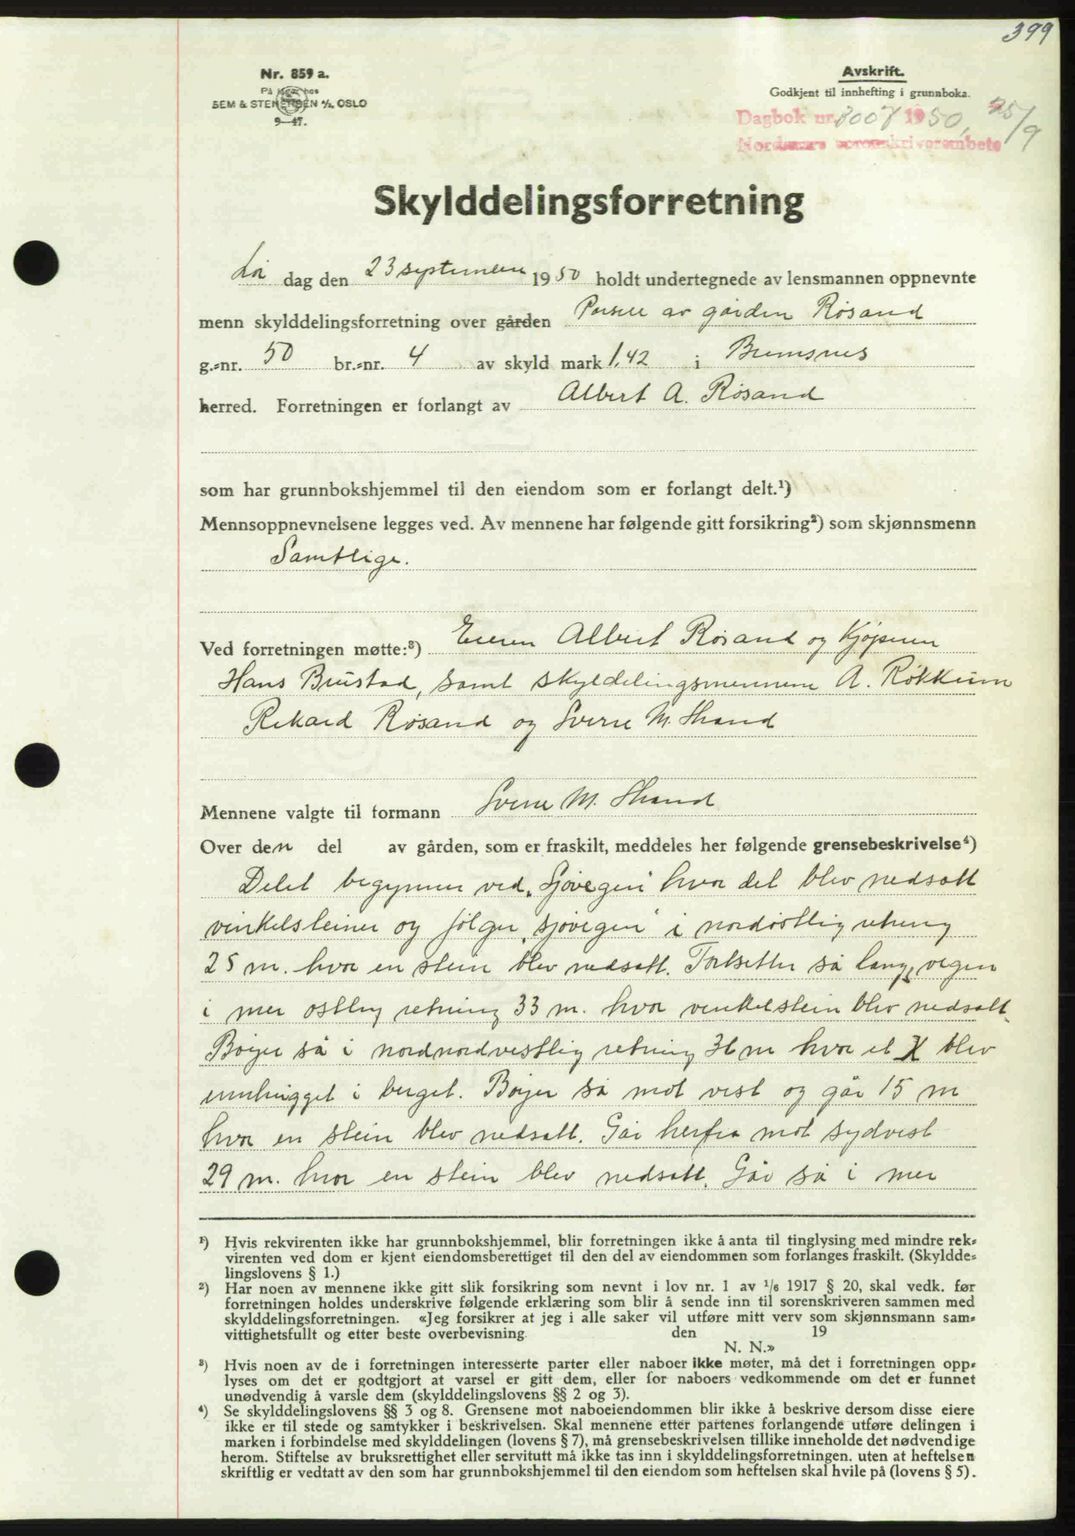 399
Nr. 859 a.
På lager hos
SEM & STENERSEN A/S, OSLO
9—47.
Avskrift.
Godkjent til innhefting i grunnboka.
Dagbok nr. 3007 1950, 25/9
Nordmøre sorenskriverembete
Skylddelingsforretning
Lør dag den 23 september 1950 holdt undertegnede av lensmannen oppnevnte
menn skylddelingsforretning over gården Parsell av gården Røsand
g.=nr. 50 br.=nr. 4 av skyld mark 1,42 i Bremsnes
herred. Forretningen er forlangt av Albert A. Røsand
som har grunnbokshjemmel til den eiendom som er forlangt delt.¹)
Mennsoppnevnelsene legges ved. Av mennene har følgende gitt forsikring²) som skjønnsmenn
Samtlige.
Ved forretningen møtte:³) Eieren Albert Røsand og kjøperen
Hans Brustad, samt skyldelingsmennene A. Røkkum
Rikard Røsand og Sverre M. Strand
Mennene valgte til formann Sverre M. Strand
Over den del av gården, som er fraskilt, meddeles her følgende grensebeskrivelse⁴)
Delet begynner ved "Sjøvegen" hvor det blev nedsatt
vinkelsteiner og følger "sjøvegen" i nordøstlig retning
25 m. hvor en stein blev nedsatt. Fortsetter så langs vegen
i mer østlig retning 33 m. hvor vinkelstein blev nedsatt.
Bøyer så i nordnordvestlig retning 36 m hvor et X blev
innhugget i berget. Bøyer så mot vest og går 15 m
hvor en stein blev nedsatt. Går herfra mot sydvest
29 m. hvor en stein blev nedsatt. Går så i mer
¹) Hvis rekvirenten ikke har grunnbokshjemmel, blir forretningen ikke å anta til tinglysing med mindre rek=
virenten ved dom er kjent eiendomsberettiget til den del av eiendommen som forlanges fraskilt. (Skyldde=
lingslovens § 1.)
²) Har noen av mennene ikke gitt slik forsikring som nevnt i lov nr. 1 av ¹/₆ 1917 § 20, skal vedk. før
forretningen holdes underskrive følgende erklæring som blir å sende inn til sorenskriveren sammen med
skylddelingsforretningen. «Jeg forsikrer at jeg i alle saker vil utføre mitt verv som skjønnsmann sam=
vittighetsfullt og etter beste overbevisning den 19
N. N.»
³) Hvis noen av de i forretningen interesserte parter eller naboer ikke møter, må det i forretningen opp=
lyses om det er godtgjort at varsel er gitt dem, eller for naboers vedkommende om det er funnet
unødvendig å varsle dem (skylddelingslovens §§ 2 og 3).
⁴) Se skylddelingslovens §§ 3 og 8. Grensene mot naboeiendommen blir ikke å beskrive dersom disse eiere
ikke er til stede og samtykker i beskrivelsen. Skal mennene etter partenes forlangende utføre delingen i
marken i forbindelse med skylddelingen (lovens § 7), må grensebeskrivelsen tillike inneholde det nødvendige
herom. Stiftelse av bruksrettighet eller servitutt må ikke tas inn i skylddelingsforretningen. uten at heftelsen
skriftlig er vedtatt av den som har grunnbokshjemmel til den eiendom som heftelsen skal hvile på (lovens § 5).